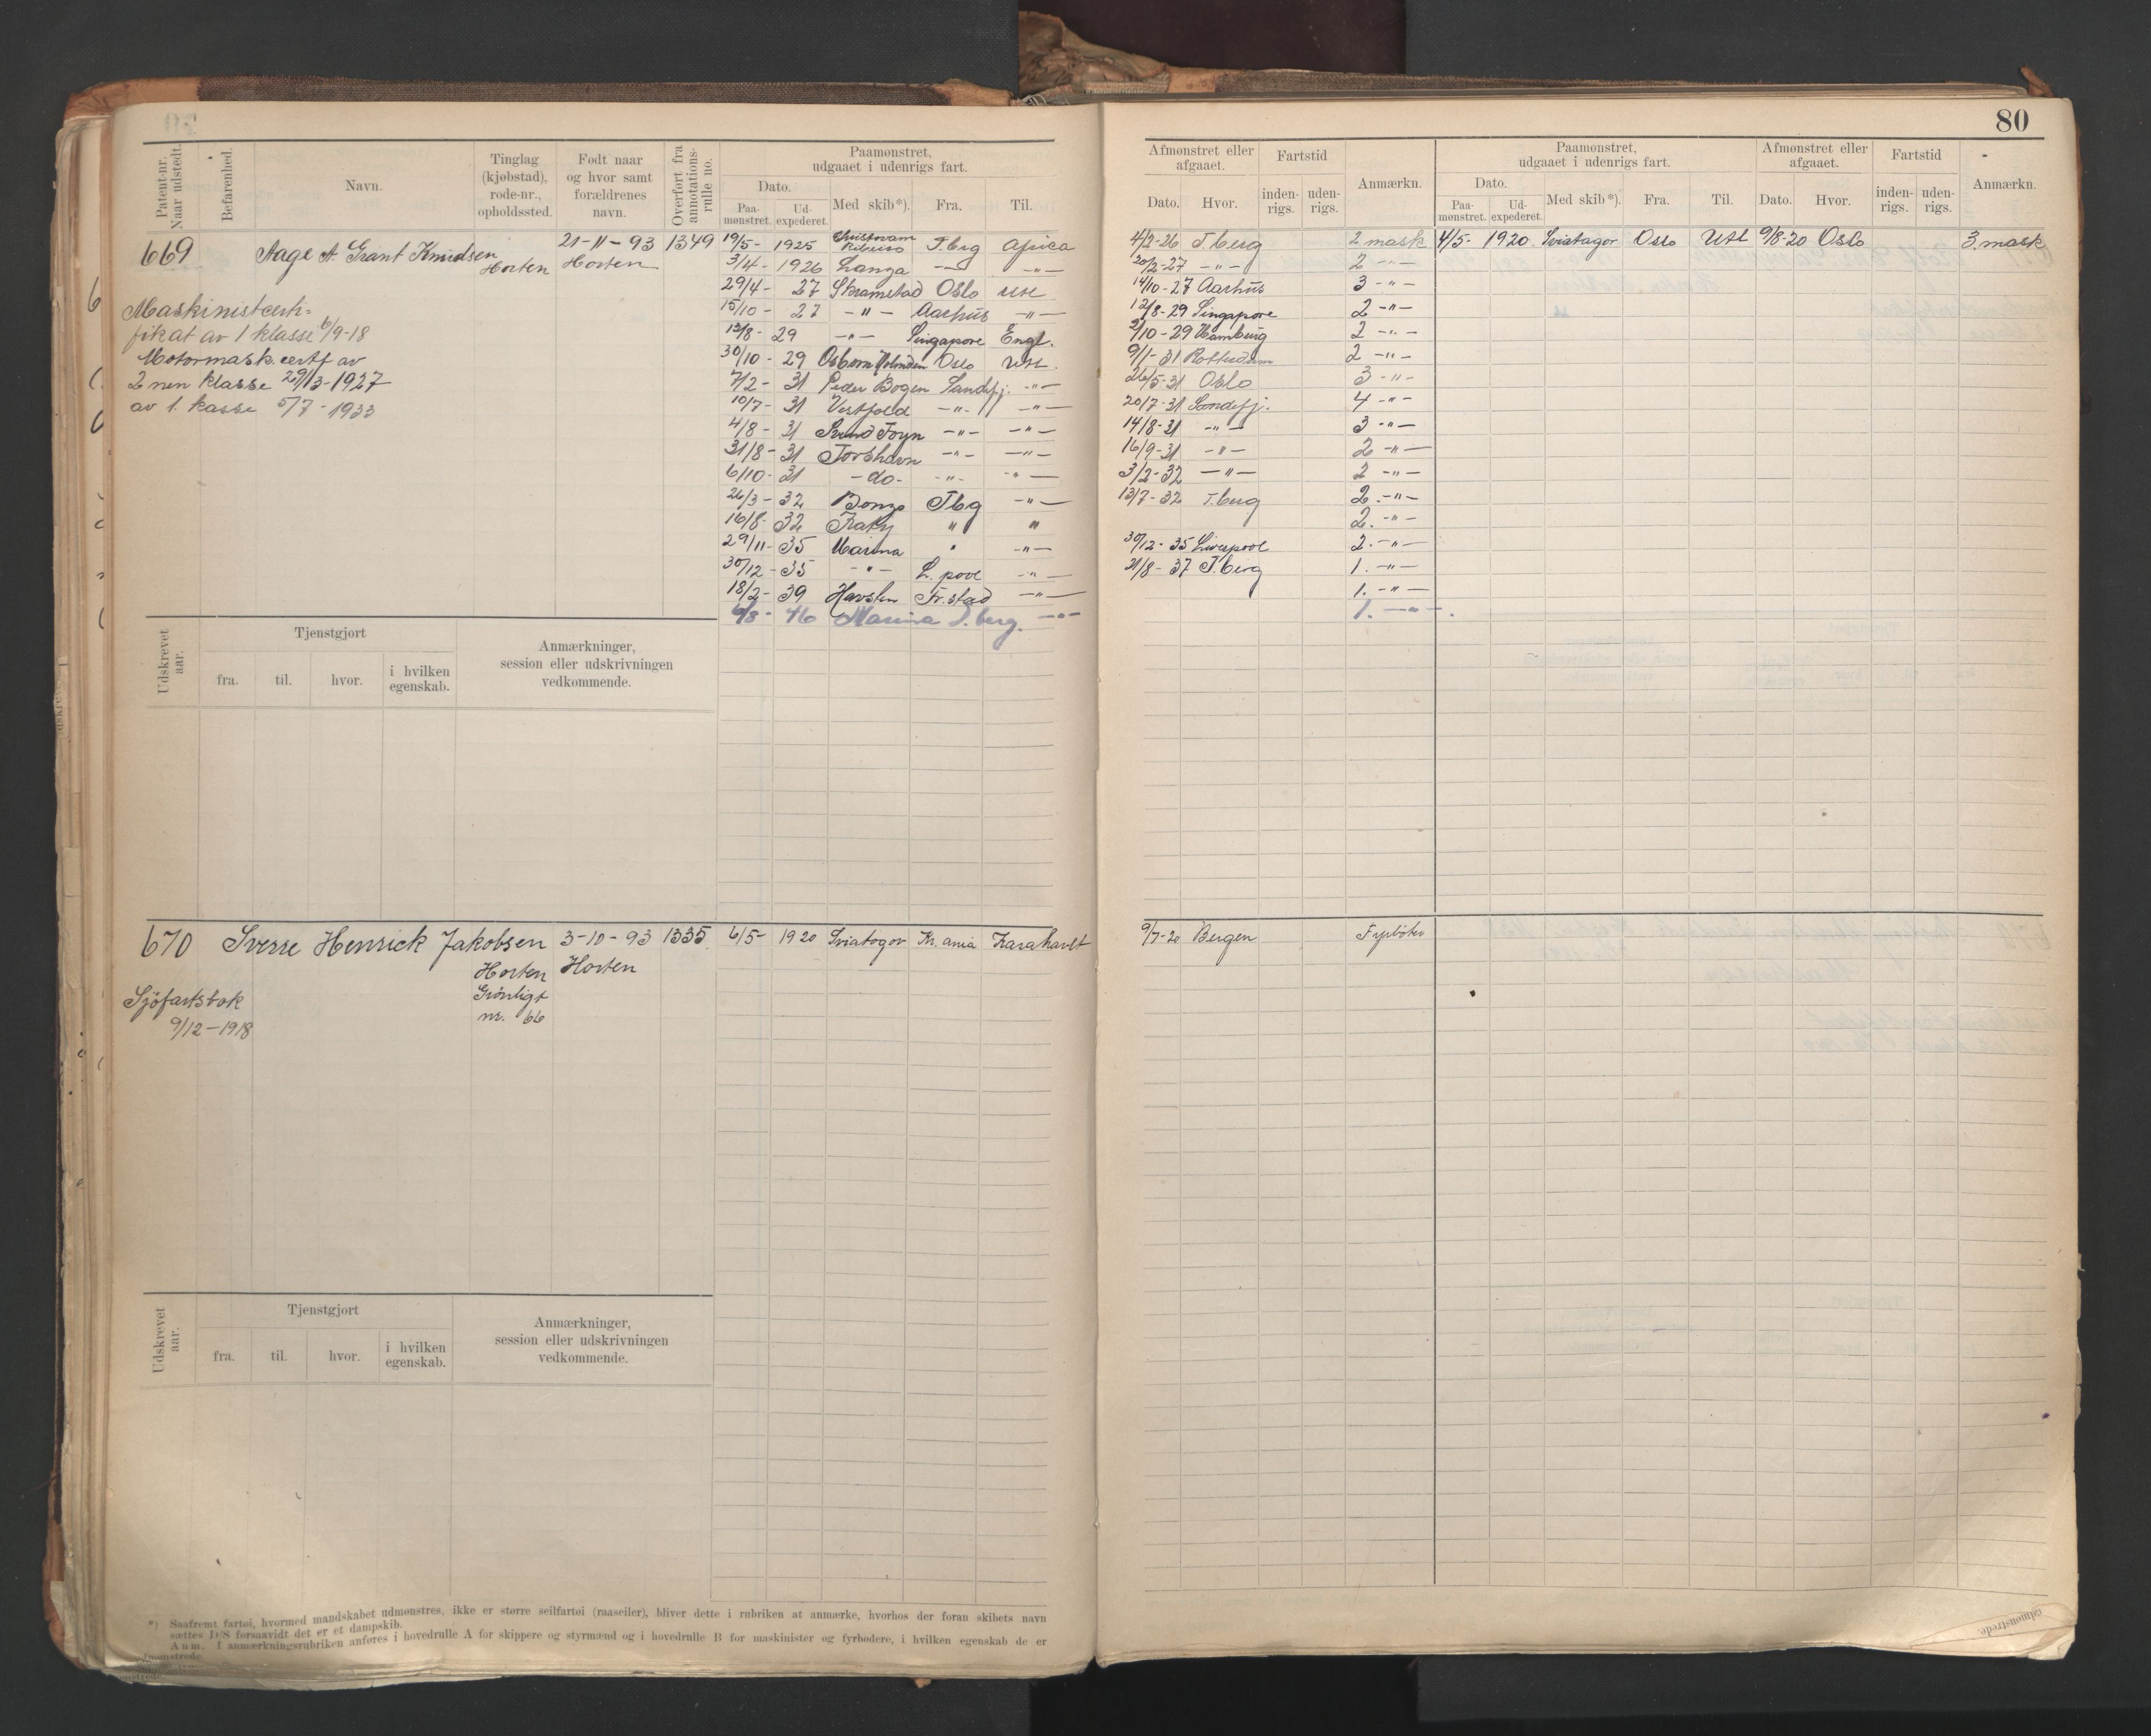 80
Patent-nr. Naar udstedt.
Befarenhed.
Navn.
Tinglag (kjøbstad), rode-nr., opholdssted.
Født naar og hvor samt forældrenes navn.
Overført fra annotations-rulle no.
Paamønstret, udgaaet i udenrigs fart.
Dato.
Paa-mønstret.
Ud-expederet.
Med skib*).
Fra.
Til.
Afmønstret eller afgaaet.
Dato.
Hvor.
Fartstid
inden-rigs.
uden-rigs.
Anmærkn.
Paamønstret, udgaaet i udenrigs fart.
Dato.
Paa-mønstret.
Ud-expederet.
Med skib*).
Fra.
Til.
Afmønstret eller afgaaet.
Dato.
Hvor.
Fartstid
inden-rigs.
uden-rigs.
Anmærkn.
669 Aage A. Grant Knudsen Horten 21-11-93 Horten 1349
Maskinistcerti-
fikat av 1 klasse 6/9-18
Motormask.certf av
2nen klasse 29/3-1927
av 1. kasse 5/7-1933
19/5- 1925 T.brg Africa
3/4- 1926 Langa -"- -"-
29/4- 27 Skramstad Oslo Utl
15/10- 27 -"- Aarhus -"-
12/8- 29 -"- Singapore Engl.
30/10- 29 Oslo Utl.
7/2- 31 Peder Bogen Sandefj. -"-
10/7- 31 Vestfold -"- -"-
4/8- 31 Svend Foyn -"- -"-
31/8- 31 Torshavn -"- -"-
6/10- 31 -do- -"- -"-
26/3- 32 Bonzo Tbg -"-
16/8- 32 " "
29/11- 35 Marina " -"-
30/12- 35 -"- L.pool -"-
18/2- 39 Fr.stad -"-
6/8- 46 Marina T.berg. -"-
4/2-26 T.berg 2 mask
20/2-27 -"- 2 -"-
14/10-27 Aarhus 3 -"-
12/8-29 Singapore 2 -"-
2/10-29 Hamburg 2 -"-
9/1-31 Rotterdam 2 -"-
26/5-31 Oslo 3 -"-
20/7-31 Sandefj. 4 -"-
14/8-31 -"- 3 -"-
16/9-31 -"- 2 -"-
3/2-32 -"- 2 -"-
13/7-32 T.berg 2. -"-
2. -"-
30/12-35 Liverpool 2. -"-
31/8-37 T.berg 1. -"-
1. -"-
1. -"-.
4/5- 1920. Sviatagor Oslo Utl 9/8-20 Oslo 3. mask
Udskrevet aar.
Tjenstgjort
fra.
til.
hvor.
i hvilken egenskab.
Anmærkninger,
session eller udskrivningen
vedkommende.
670 Sverre Henrick Jakobsen 3-10-93 1335. 6/5- 1920 Sviatogor Kr.ania
Horten Horten
Grönligt
nr. 66
Sjöfartsbok
9/12-1918
9/7-20 Bergen Fyrböter
Udskrevet aar.
Tjenstgjort
fra.
til.
hvor.
i hvilken egenskab.
Anmærkninger,
session eller udskrivningen
vedkommende.
*) Saafremt fartøi, hvormed mandskabet udmønstres, ikke er større seilfartøi (raaseiler), bliver dette i rubriken at anmærke, hvorhos der foran skibets navn
sættes D/S forsaavidt det er et dampskib.
Anm. I anmærkningsrubriken anføres i hovedrulle A for skippere og styrmænd og i hovedrulle B for maskinister og fyrbødere, i hvilken egenskab de er
udmønstrede.